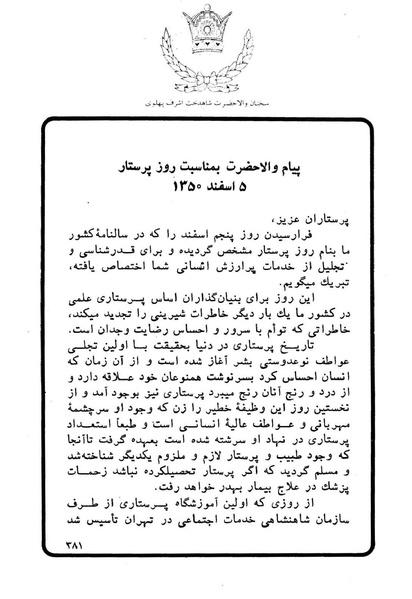 سخنان والاحضرت شاهدخت اشرف پهلوی
پیام والاحضرت بمناسبت روز پرستار
۵ اسفند ۱۳۵۰
پرستاران عزیز،
فرارسیدن روز پنجم اسفند را که در سالنامهٔ کشور
ما بنام روز پرستار مشخص گردیده و برای قدرشناسی و
تجلیل از خدمات پرارزش انسانی شما اختصاص یافته،
تبریك میگویم.
این روز برای بنیان‌گذاران اساس پرستاری علمی
در کشور ما یك بار دیگر خاطرات شیرینی را تجدید میکند،
خاطراتی که توأم با سرور و احساس رضایت وجدان است.
تاریخ پرستاری در دنیا بحقیقت با اولین تجلی
عواطف نوعدوستی بشر آغاز شده است و از آن زمان که
انسان احساس کرد بسرنوشت همنوعان خود علاقه دارد و
از درد و رنج آنان رنج میبرد پرستاری نیز بوجود آمد و از
نخستین روز این وظیفهٔ خطیر را زن که وجود او سرچشمهٔ
مهربانی و عواطف عالیهٔ انسانی است و طبعاً استعداد
پرستاری در نهاد او سرشته شده است بعهده گرفت تاآنجا
که وجود طبیب و پرستار لازم و ملزوم یکدیگر شناخته‌شد
و مسلم گردید که اگر پرستار تحصیلکرده نباشد زحمات
پزشك در علاج بیمار بهدر خواهد رفت.
از روزی که اولین آموزشگاه پرستاری از طرف
سازمان شاهنشاهی خدمات اجتماعی در تهران تأسیس شد
۳۸۱